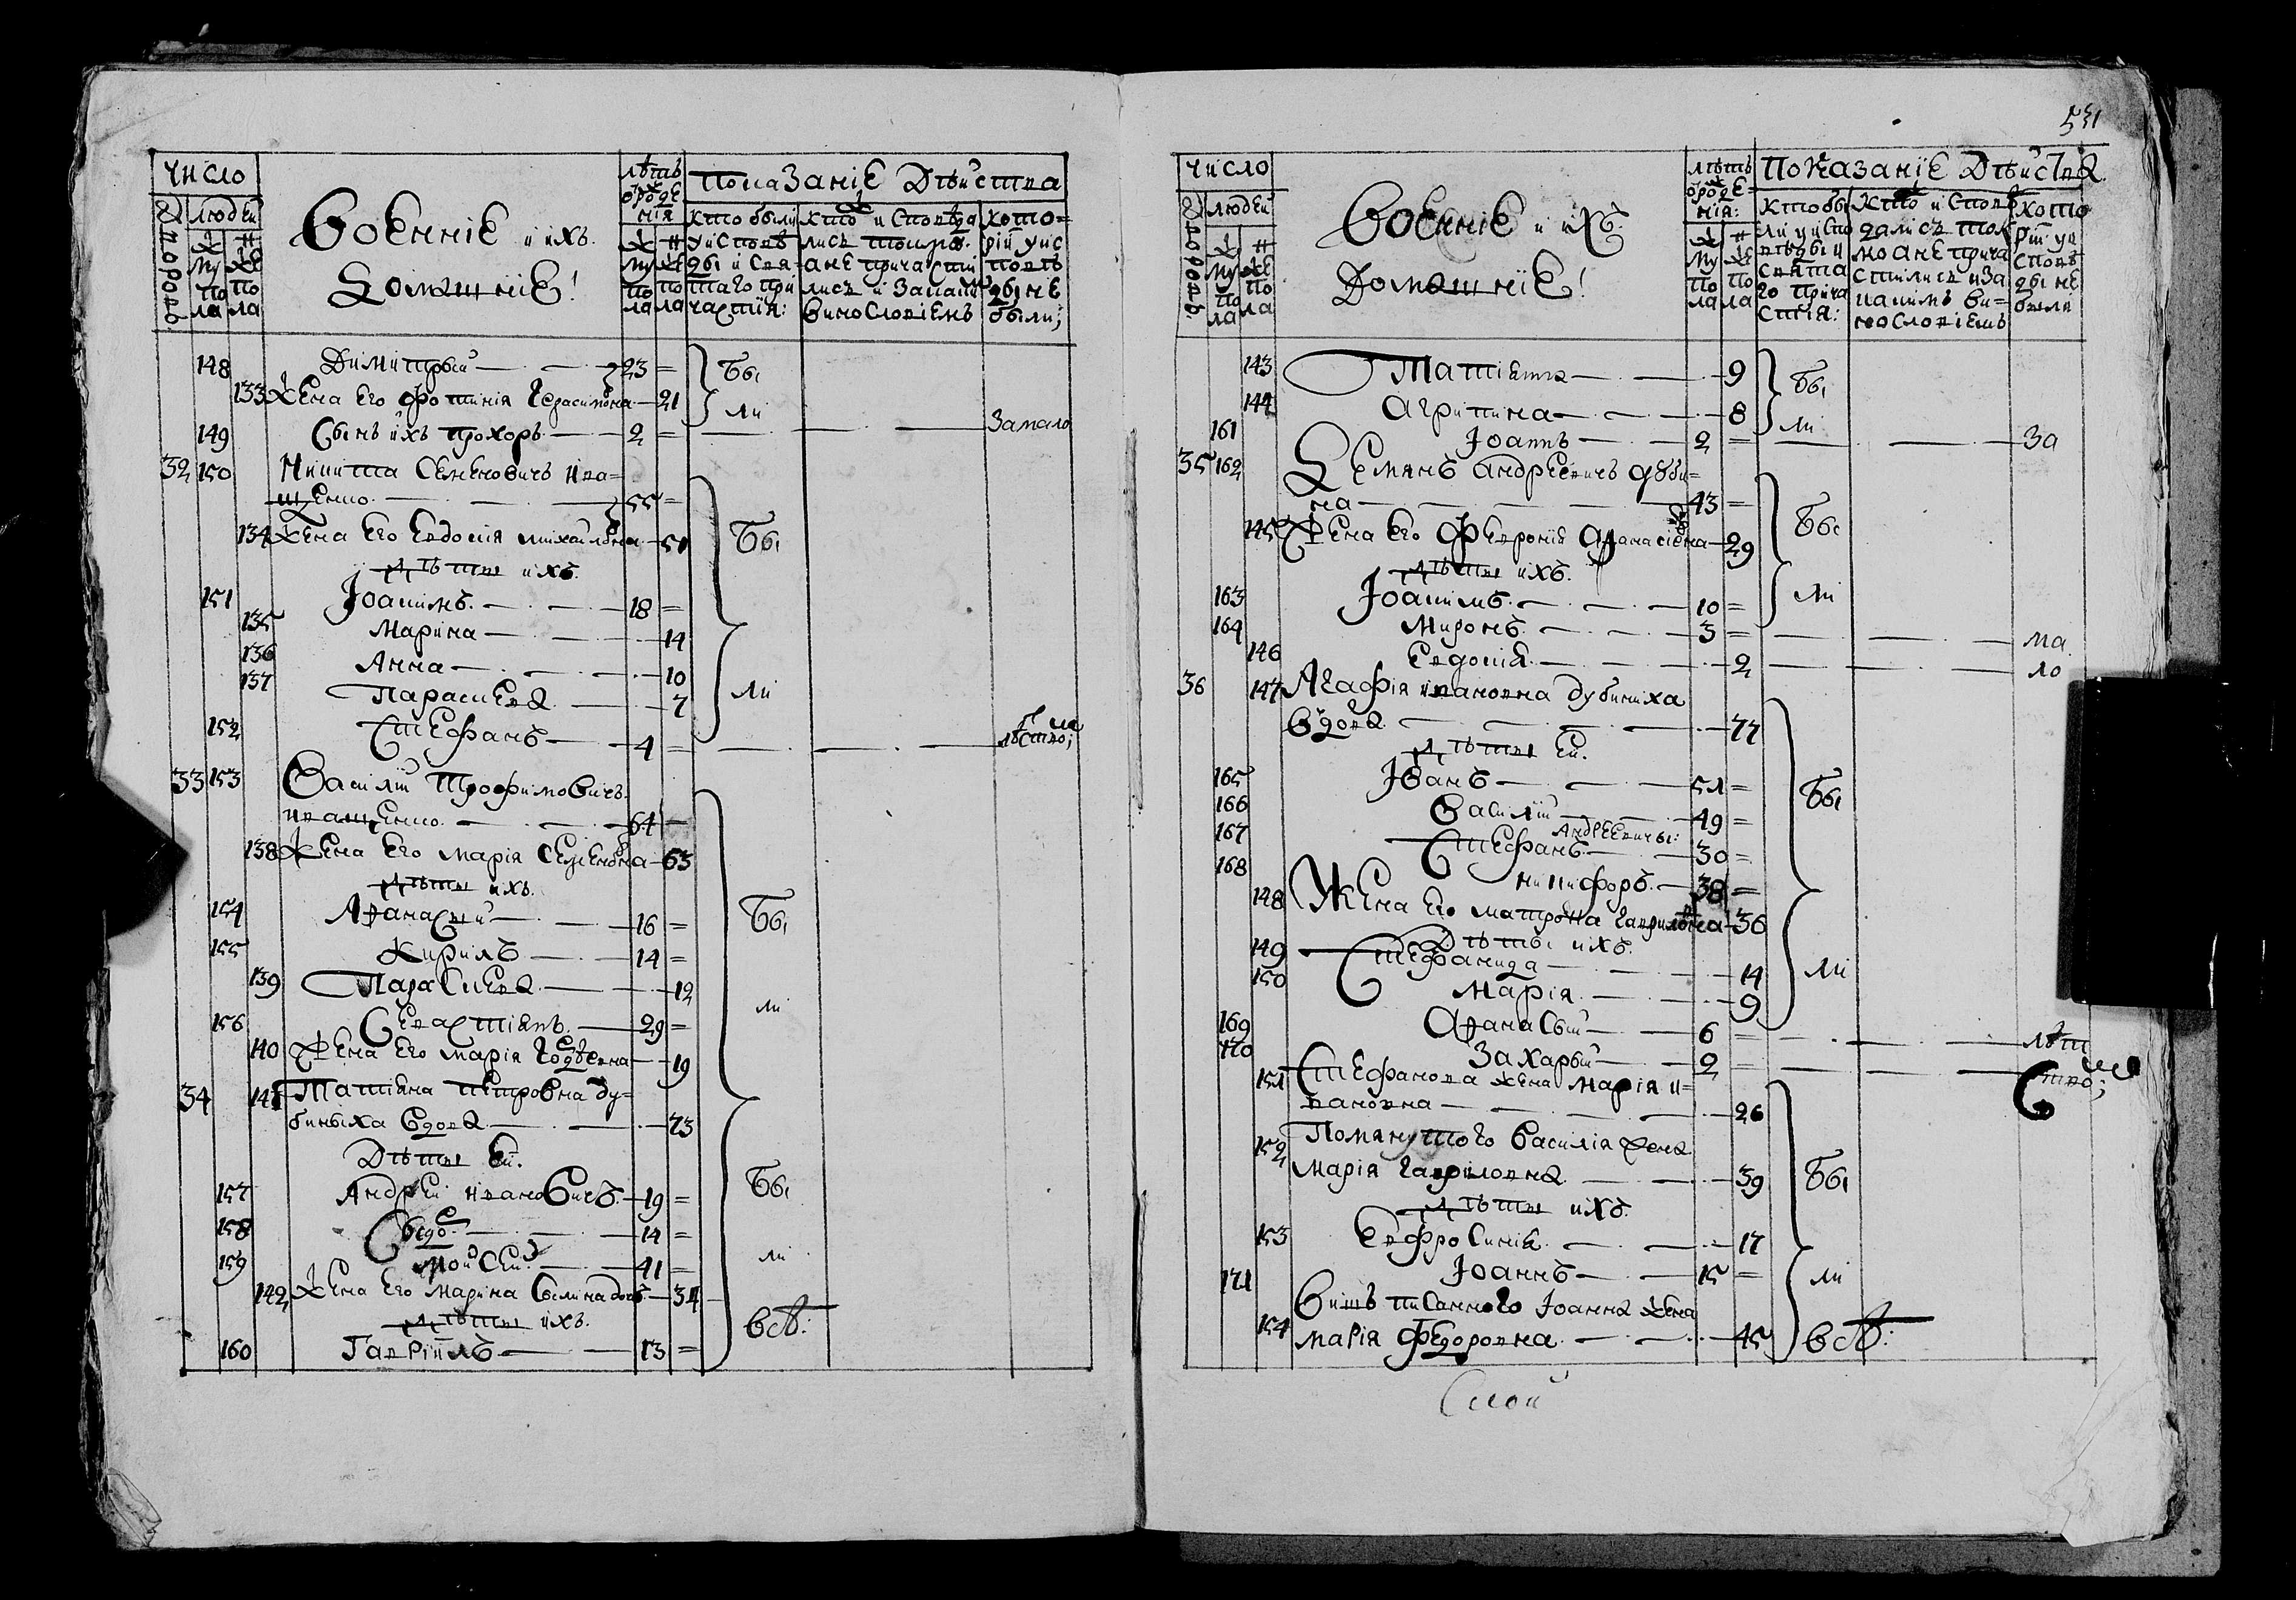 число
дворовъ
людей
муж пола
жен пола
Военніе и ихъ
Домашніе
лѣтъ
ѿ рожде
нія
муж пола
жен пола
показаніе дѣйства
кто были
у исповѣ
ди и свя
таго при
частія:
кто исповѣда
лись токмо
а не причасти
лись и за каким
винословіемъ
кото
рій у ис
повѣ
ди не
были;
148 Димитрый 23 =
133 Жена его Фотинія Герасимовна 21
бы
ли
149 Сынъ ихъ Прохоръ 2 = за мало
32 150 Никита Семеновичъ Ива=
щенко 55 =
134 Жена его Евдокія Михайловна 51
бы
дѣти ихъ
151 Іоакимъ 18 =
135 Марина 14
136 Анна 10
137 Параскева 7
ли
152 Стефанъ 4 = лѣтство;
33 153 Василій Трофимовичъ
Иващенко 64 =
138 Жена его Марія Семеновна 63
дѣти ихъ
154 Афанасій 16 =
бы
155 Кирилъ 14 =
139 Параскева 12
ли
156 Севастіянъ 29 =
140 Жена его Марія 19
34 141 Татіяна Петровна Ду=
биныха вдова 73
Дѣти ей
157 Андрей Ивановичъ 19 =
бы
158 14 =
159 Мойсей 41 =
ли
142 Жена его Марина 34
дѣти ихъ
всѣ:
160 Гавріилъ 13 =
531
число
дворовъ
людей
муж пола
жен пола
Военніе и ихъ
Домашніе
лѣтъ
ѿ рожде=
нія:
муж пола
жен пола
показаніе дѣйства
кто бы
ли у испо
вѣди и
свята
го прича
стія:
кто исповѣ
дались ток
мо а не прича
стились и за
какимъ ви=
нословіемъ
кото
рій у и
сповѣ
ди не
были
143 Татіяна 9
бы
144 Агрипина 8
ли
161 Іоаннъ 2 = за
35 162 Демянъ Андреевичъ Дуби=
на 43 =
145 Жена его Февронія Афанасіевна 29
бы
дѣти ихъ
163 Іоакимъ 10 =
ли
164 Миронъ 3 = ма
146 Евдокія 2 ло
36 147 Агафія Ивановна Дубиниха
вдова 77
дѣти ей
165 Іванъ 51 =
бы
166 Василій 49 =
Андреевичы:
167 Стефанъ 30 =
168 Никифоръ 38 =
148 Жена его Матрона Гавриловна 36
Дѣти ихъ
149 Стефанида 14
ли
150 Марія 9
169 Афанасый 6 = лѣт
170 Захарый 2 = ство;
151 Стефанова жена Марія И=
вановна 26
152 Помянутого Василія жена
Марія Гавриловна 39
бы
дѣти ихъ
153 Евфросинія 17
171 Іоаннъ 15 =
ли
Вишъ писанного Іоанна жена
154 Марія Федоровна 45
всѣ: